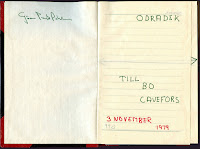 ODRADEK
TILL
BO
CAVEFORS
3 NOVEMBER
1979